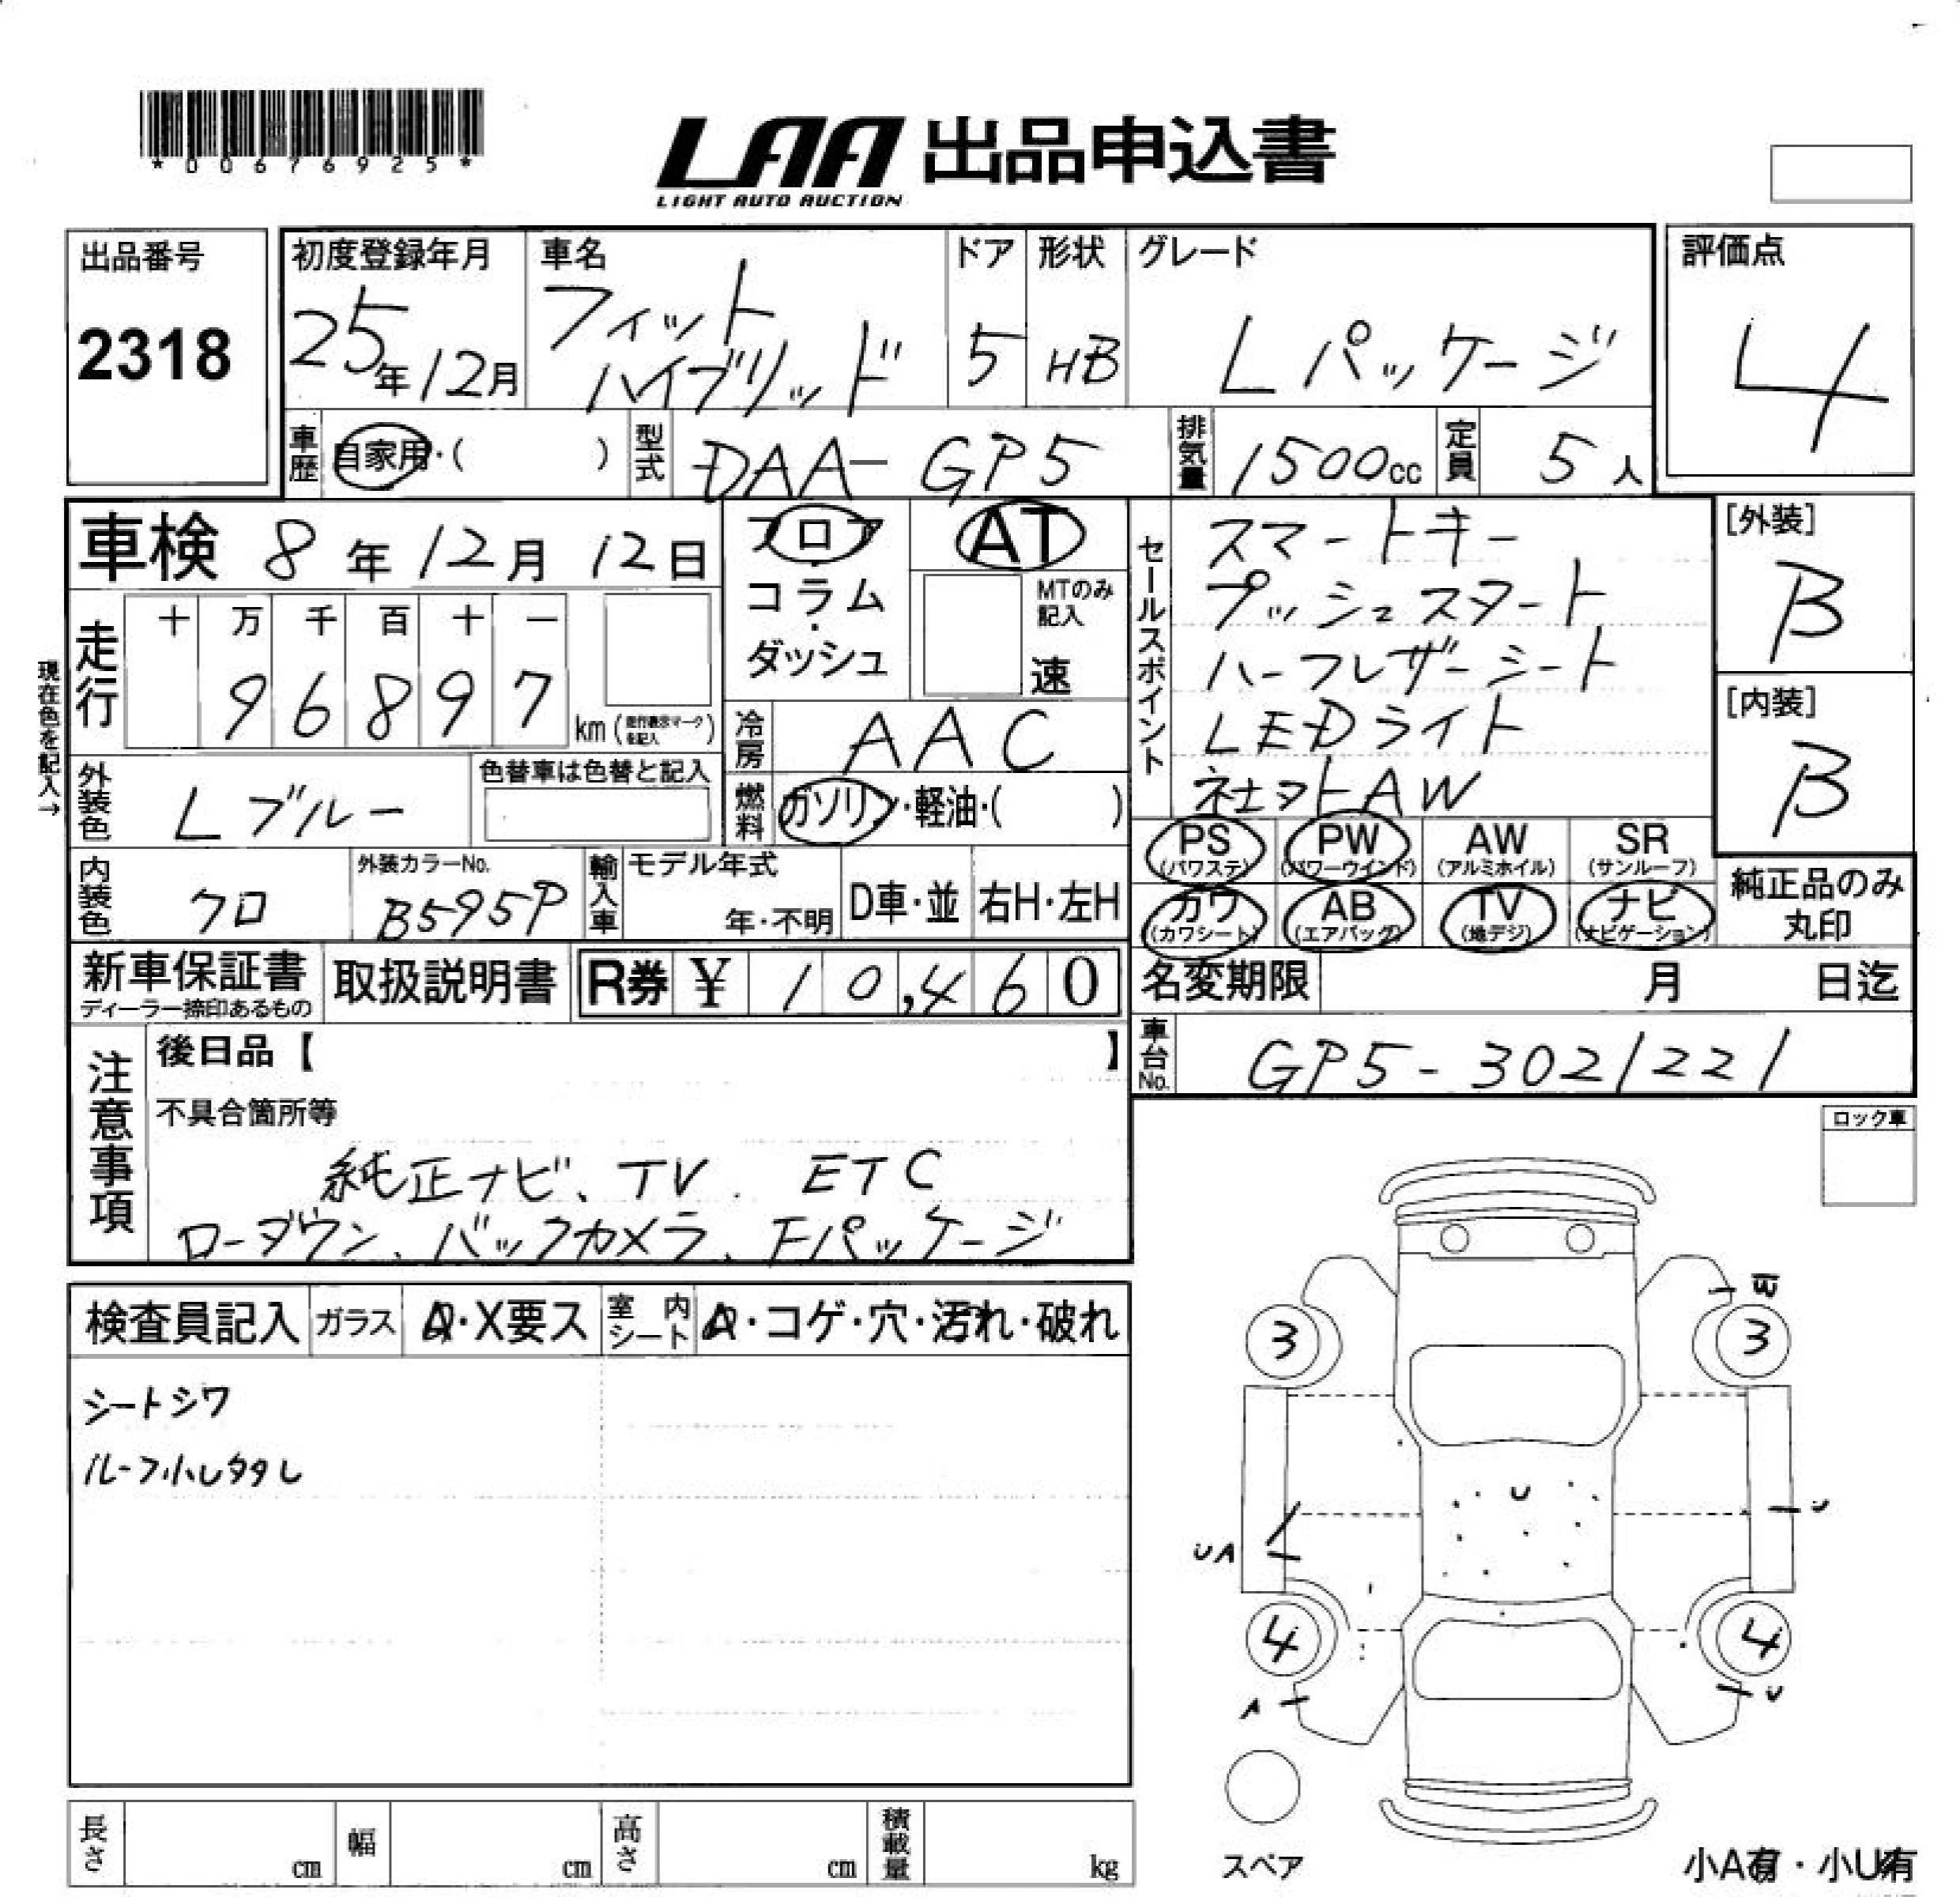 *00676925*
LAA 出品申込書
LIGHT AUTO AUCTION
出品番号
2318
初度登録年月
25年12月
車名
フィット
ハイブリッド
ドア
5
形状
HB
グレード
Lパッケージ
評価点
4
車歴
自家用・( )
型式
DAA-GP5
排気量
1500cc
定員
5人
車検 8年12月12日
走行
十 万 千 百 十 一
9 6 8 9 7
km(走行表示マークを記入)
現在色を記入→
外装色
Lブルー
色替車は色替と記入
内装色
クロ
外装カラーNo.
B595P
輸入車
モデル年式
年・不明
D車・並
右H・左H
フロア
コラム
・
ダッシュ
AT
MTのみ
記入
速
冷房
AAC
燃料
ガソリン・軽油・( )
セールスポイント
スマートキー
プッシュスタート
ハーフレザーシート
LEDライト
社外AW
[外装]
B
[内装]
B
PS
(パワステ)
PW
(パワーウインド)
AW
(アルミホイル)
SR
(サンルーフ)
カワ
(カワシート)
AB
(エアバッグ)
TV
(地デジ)
ナビ
(ナビゲーション)
純正品のみ
丸印
新車保証書
ディーラー捺印あるもの
取扱説明書
R券 ¥ 10,460
名変期限
月 日迄
車台No.
GP5-3021221
注意事項
後日品【 】
不具合箇所等
純正ナビ、TV. ETC
ローダウン、バックカメラ、Fパッケージ
ロック車
検査員記入
ガラス
A・X要ス
室内
シート
A・コゲ・穴・汚れ・破れ
シートシワ
3
3
U
U
UA
4
4
A
U
スペア
小A有・小U有
長さ
cm
幅
cm
高さ
cm
積載量
kg